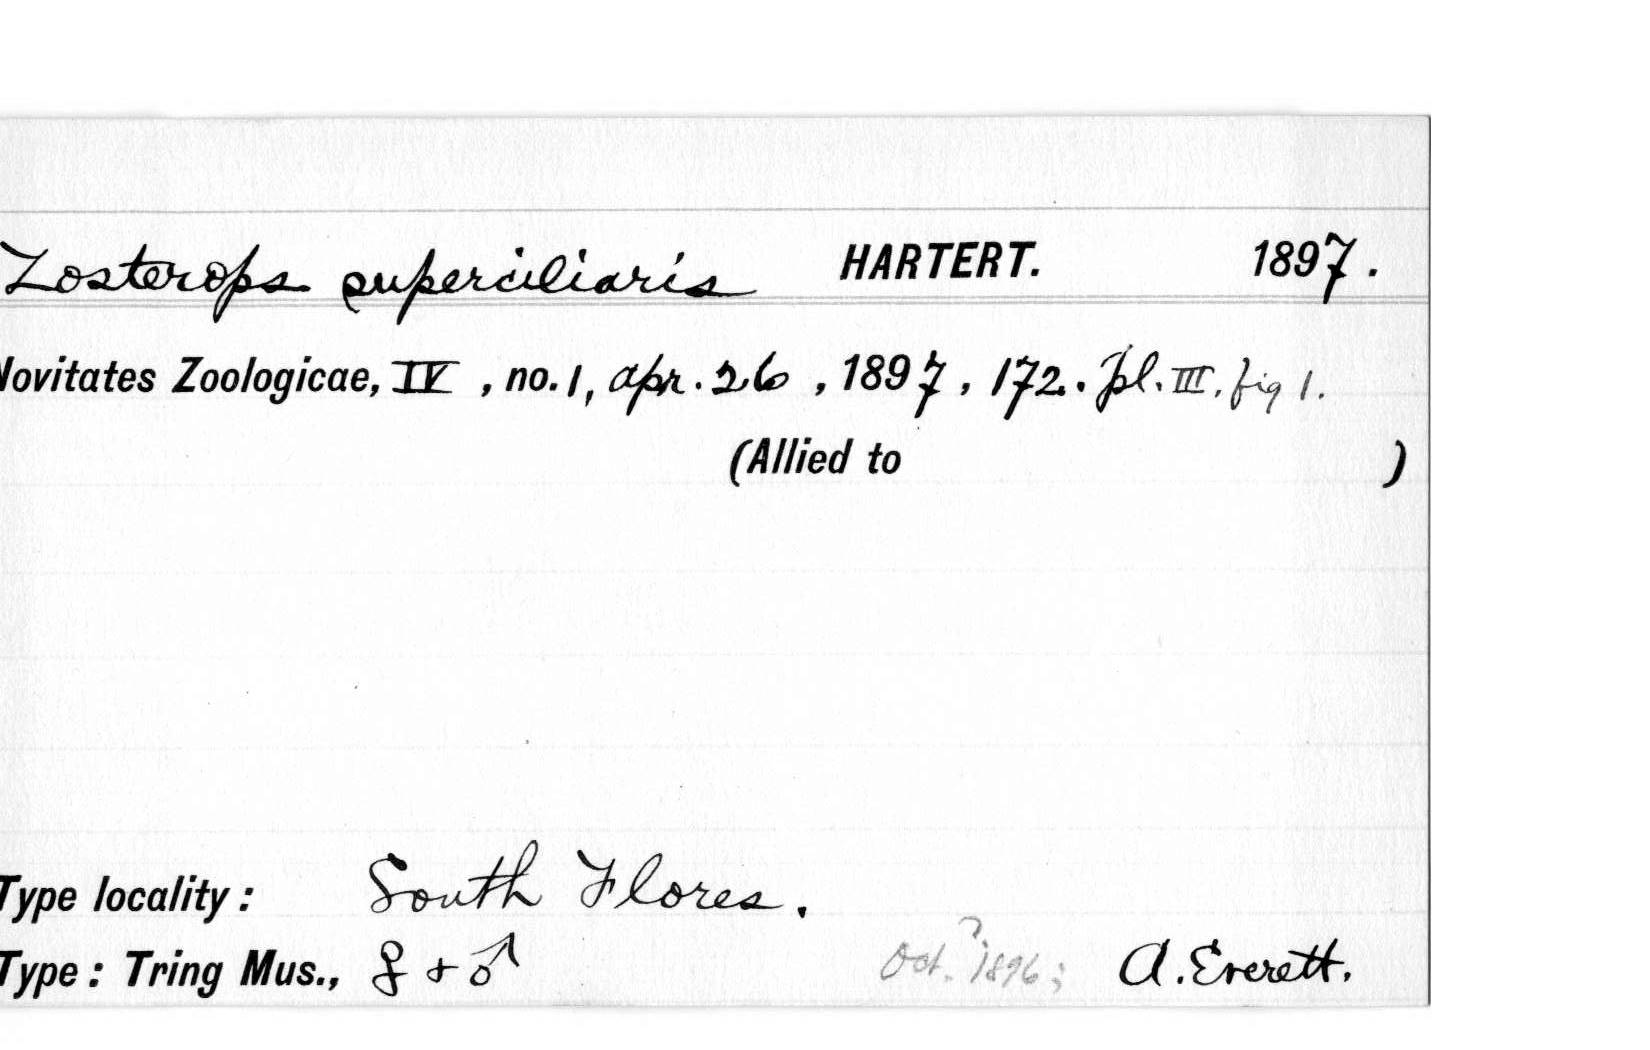 Zosterops superciliaris HARTERT. 1897.
Novitates Zoologicae, IV, no. 1, apr. 26, 1897, 172. pl. III. fig 1.
(Allied to )
Type locality: South Flores.
Type: Tring Mus., ♀ + ♂ Oct. ? 1896; A. Everett.